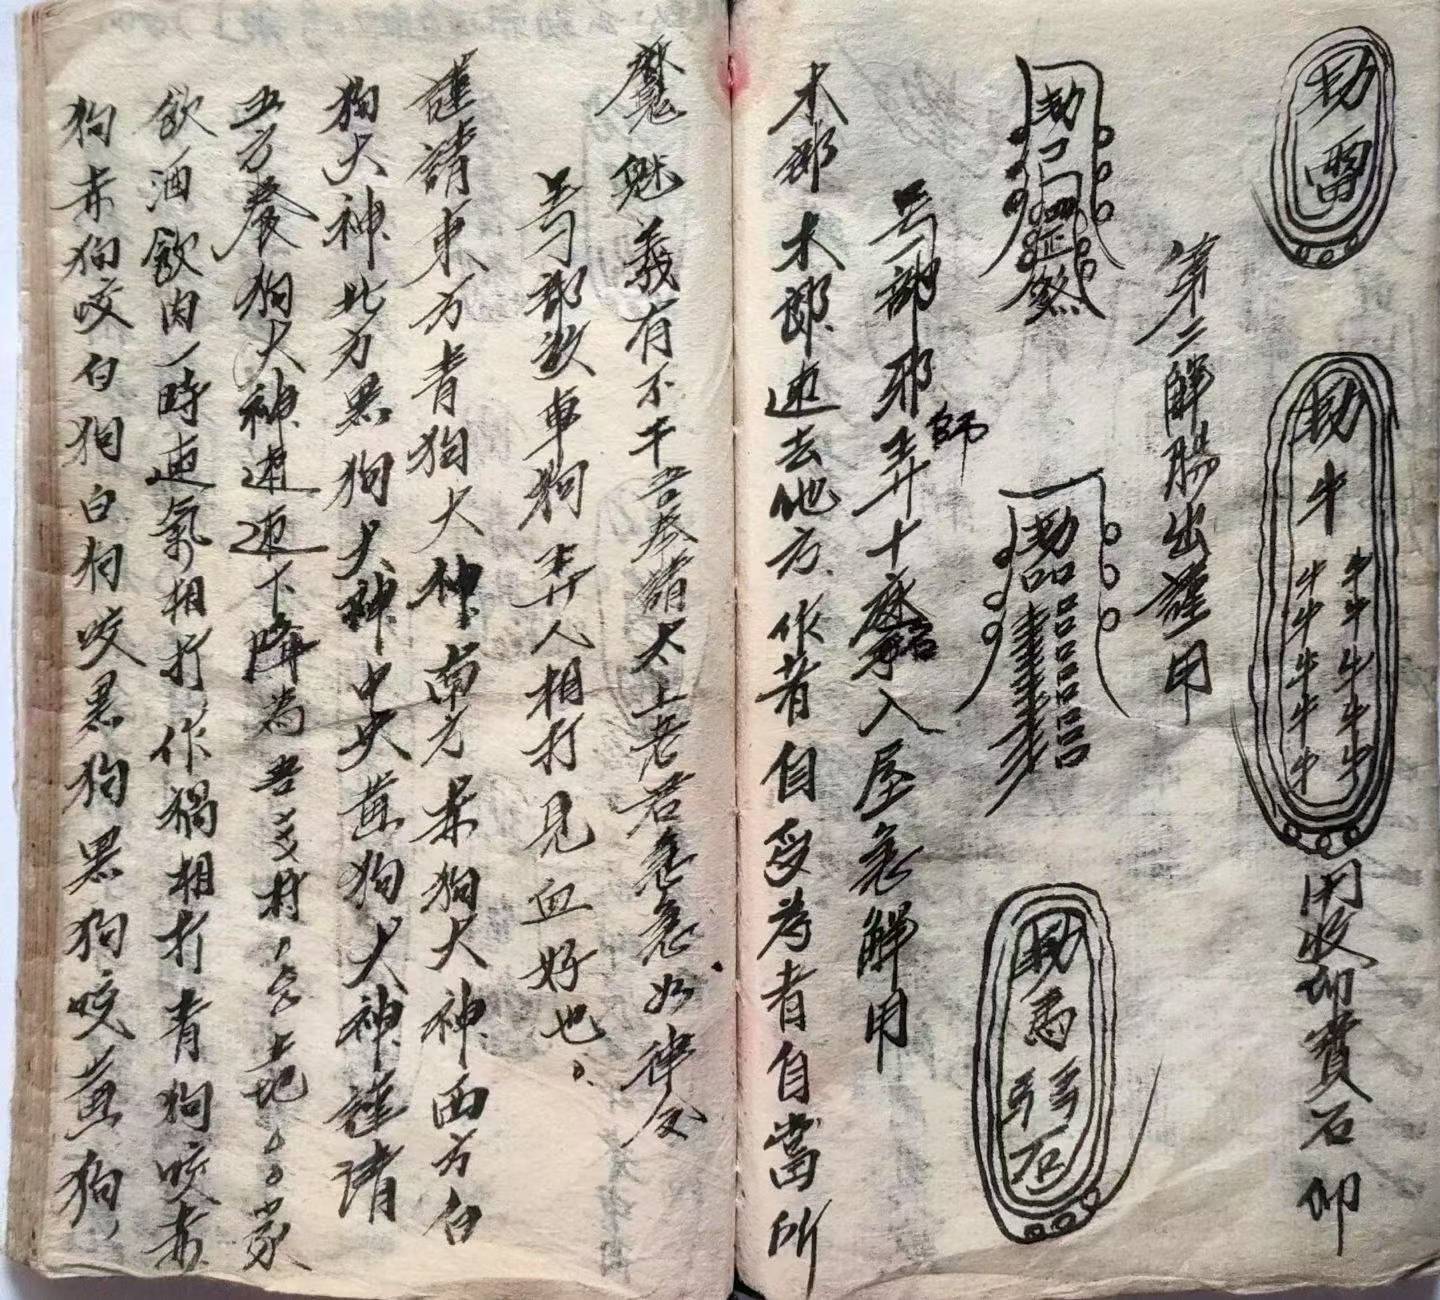 勅雷
勅牛牛牛牛牛牛牛牛牛牛牛
用收卯費石卯
第二解腸出謹用
勅馬弓弓石
又一部邪師弄十 入屋急解用
木郎木郎速去他方作者自受為者自當所
魔魅義有不干吾奉請太上老君急急如律令
部 車狗弄人相打見血好也
謹請東方青狗大神南方赤狗大神西方白
狗大神北方黑狗大神中央黃狗大神謹請
五方養狗大神速速下降為吾 村 土地 家
飲酒飲肉一時 氣相打作禍相打青狗咬赤
狗赤狗咬白狗白狗咬黑狗黑狗咬黃狗